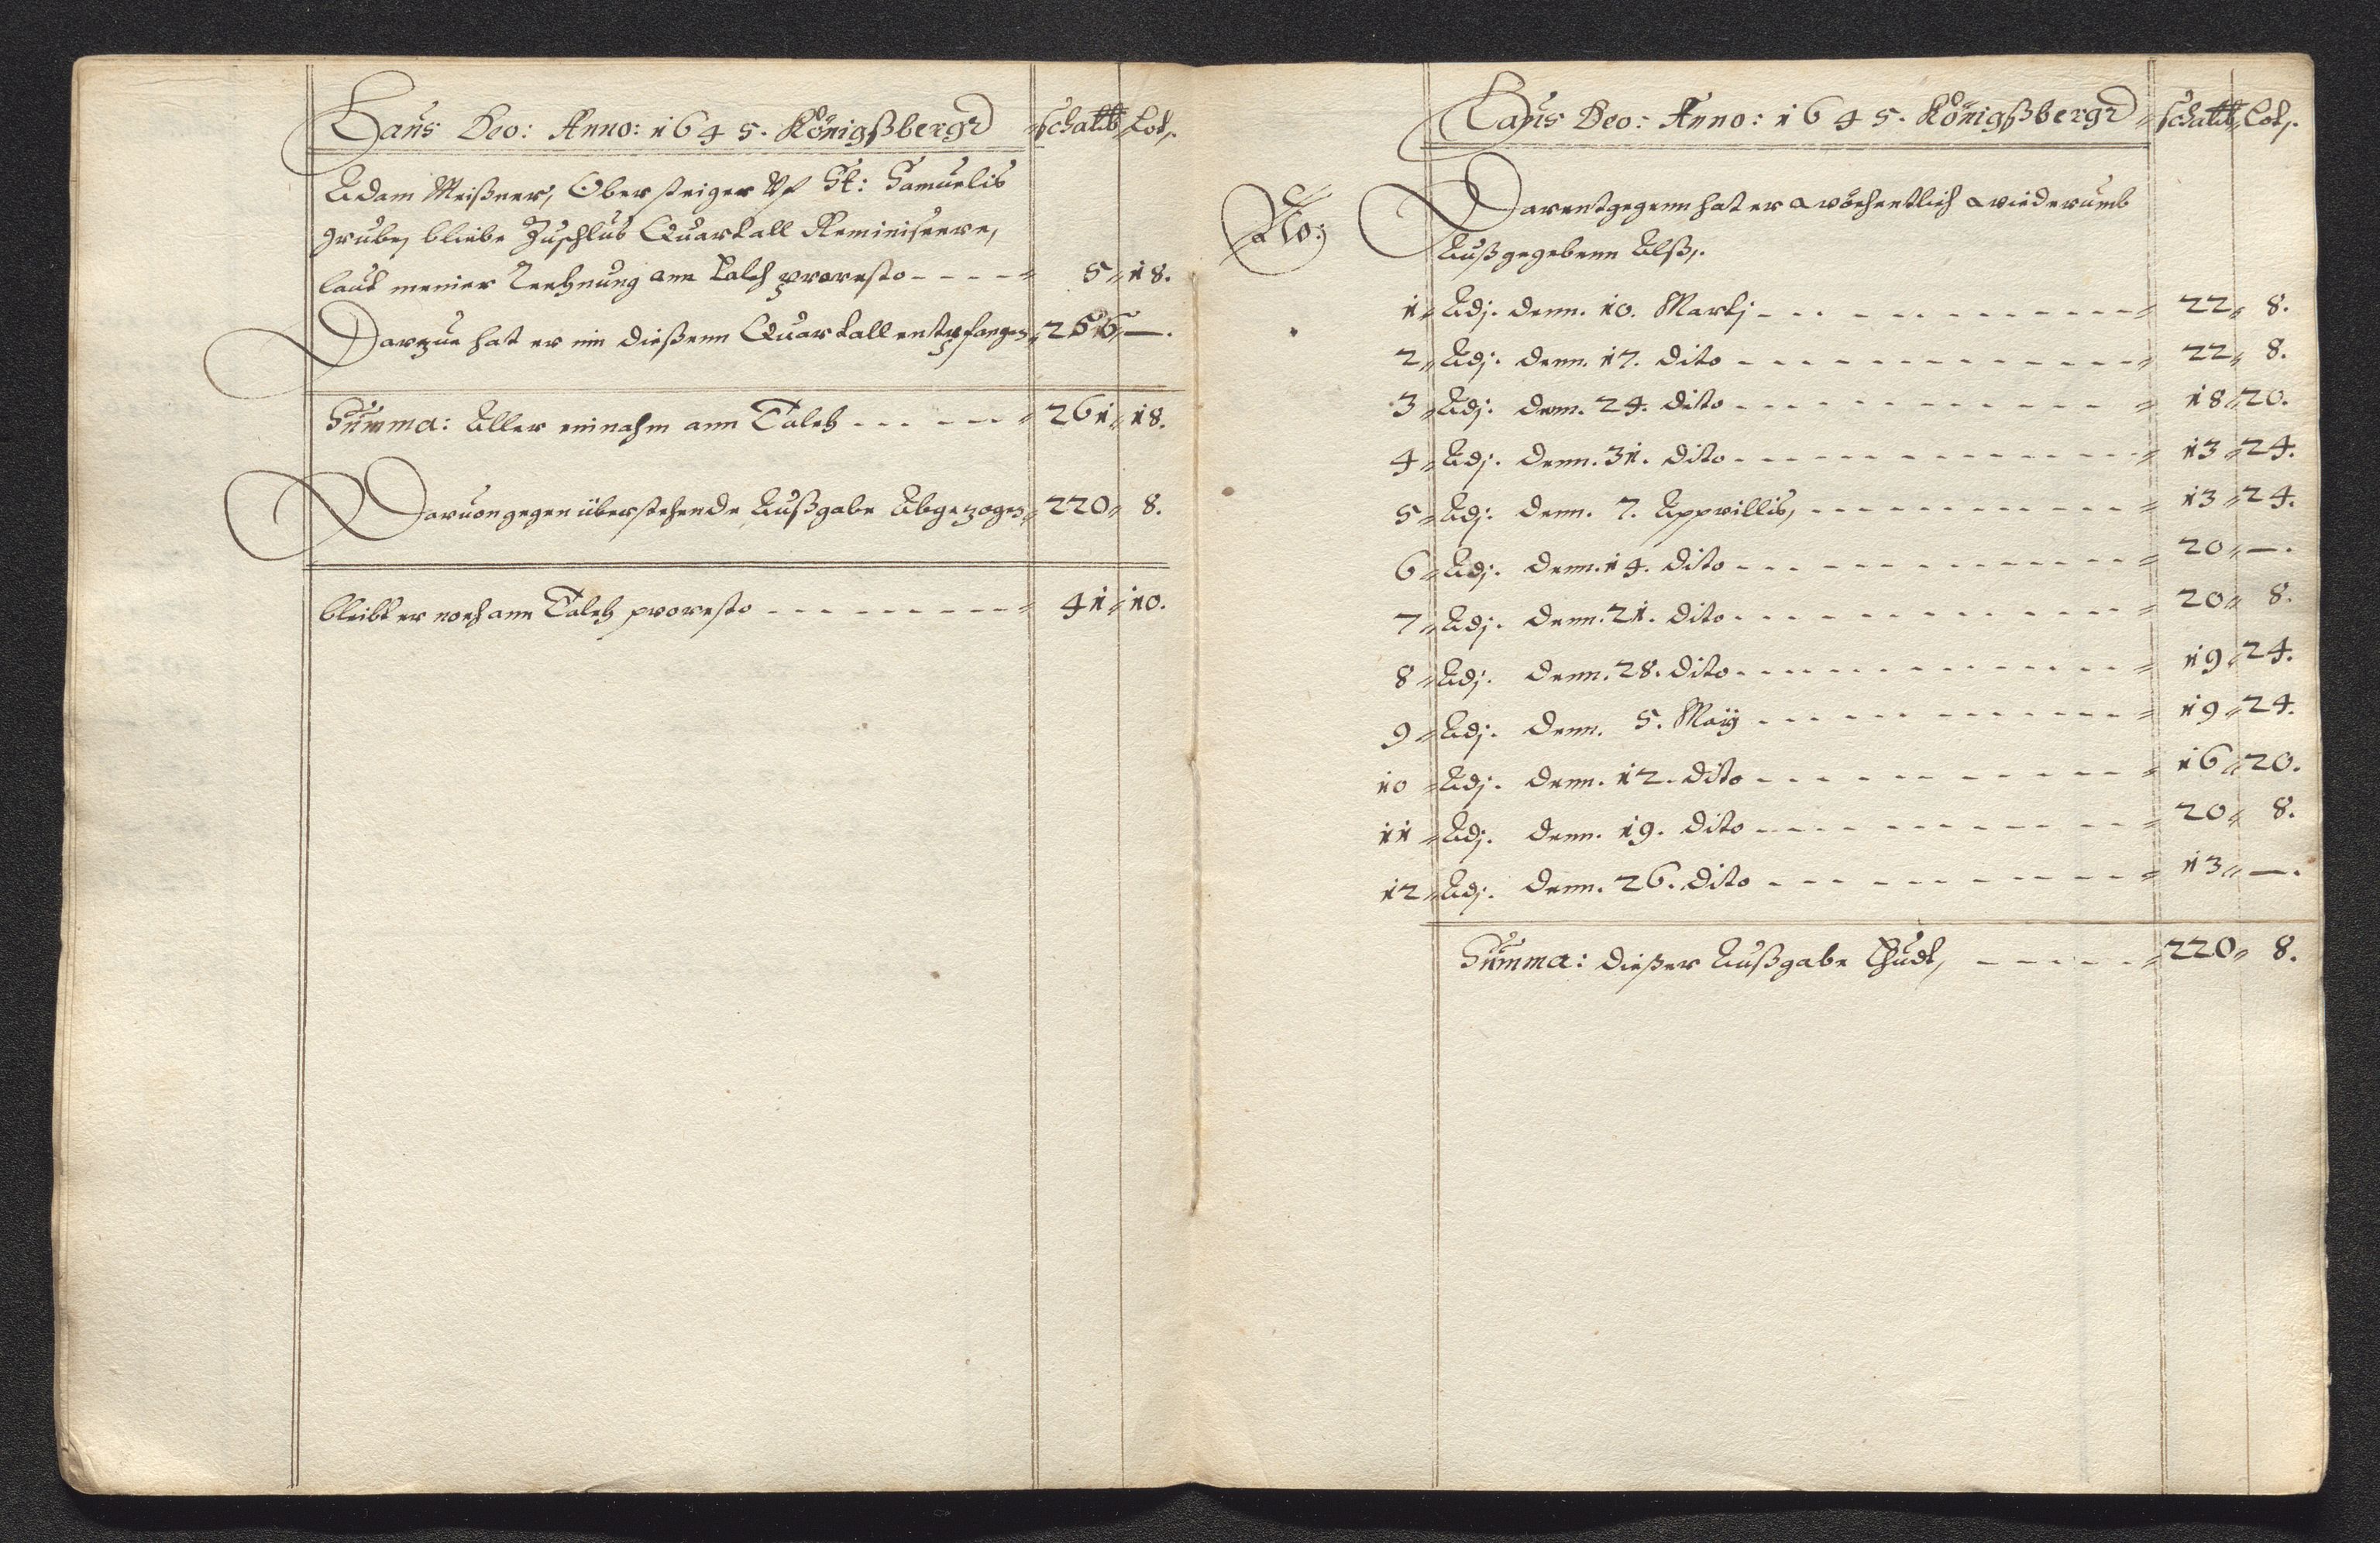 Laus Deo: Anno: 1645. Königßbergk Schalch Lot,.
Adam Meißner, Obersteiger Vf St: Samuelis
grube, bliebe Zuschlus Quartall Reminiscere,
laut meiner Rechnung ann Talch proresto - - - - 5 „ 18.
Darzue hat er im dießenn Quartall entpfangen „ 256 „ —.
Summa: Aller einnahm ann Talch - - - - - 261 „ 18.
Daruon gegen überstehende Außgabe Abgezogen „ 220 „ 8.
bleibt er noch ann Talch proresto - - - - - - - - 41 „ 10.
Laus Deo: Anno: 1645. Königßbergk „ Lot,.
No:
Darentgegenn hat er wöchentlich wiederumb
Außgegebenn Alß,.
1 „ Adj. denn. 10. Martj - - - - - - - - - - - 22 „ 8.
2 „ Adj. denn. 17. dito - - - - - - - - - - - - 22 „ 8.
3 „ Adj. denn. 24. dito - - - - - - - - - - - - 18 „ 20.
4 „ Adj. denn. 31. dito - - - - - - - - - - - - 13 „ 24.
5 „ Adj. denn. 7. Apprillis, - - - - - - - - - - 13 „ 24.
6 „ Adj. denn. 14. dito - - - - - - - - - - - - 20 „ —.
7 „ Adj. denn. 21. dito - - - - - - - - - - - - 20 „ 8.
8 „ Adj. denn. 28. dito - - - - - - - - - - - - 19 „ 24.
9 „ Adj. denn. 5. Maÿ - - - - - - - - - - - - 19 „ 24.
10 „ Adj. denn. 12. dito - - - - - - - - - - - 16 „ 20.
11 „ Adj. denn. 19. dito - - - - - - - - - - - 20 „ 8.
12 „ Adj. denn. 26. dito - - - - - - - - - - - 13 „ —.
Summa: dießer Außgabe Thudt, - - - - - 220 „ 8.